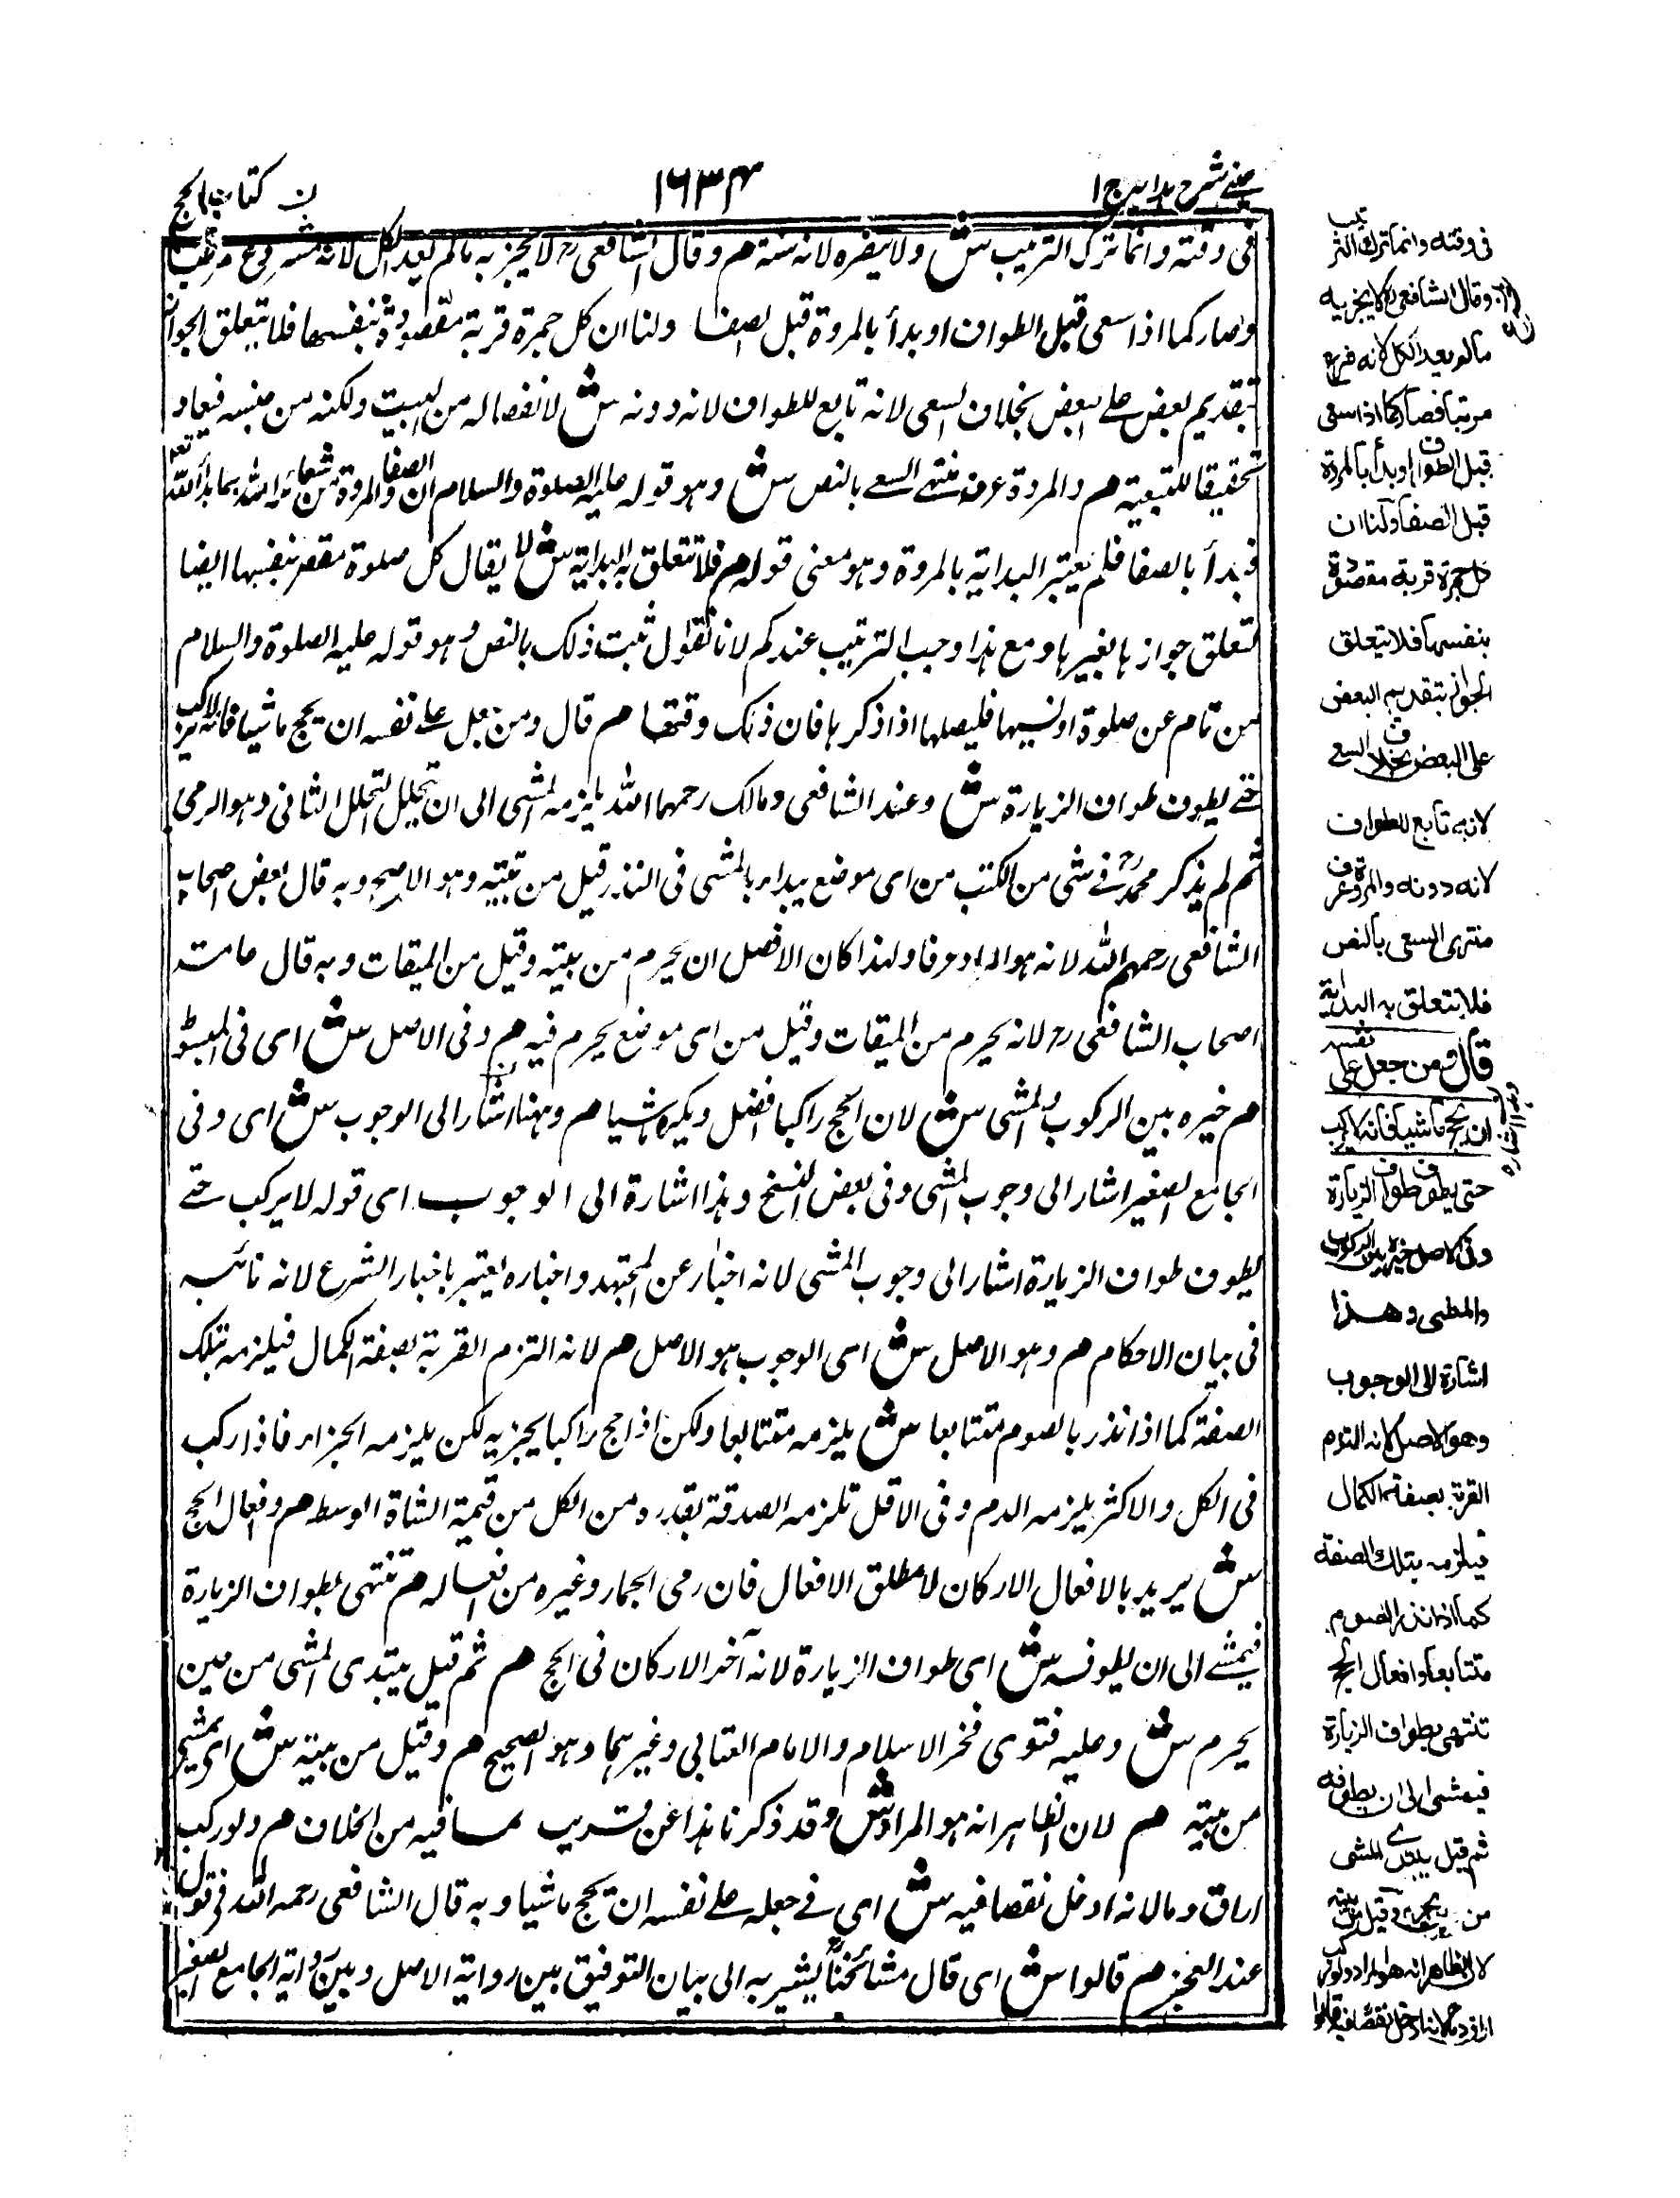 عينى شرح هدايه ج ا
١٦٣٤
كتاب الحج
فى وقته وانما ترك الترتيب ش ولا يضره لانه سنة م وقال الشافعى رح لا يجزيه مالم يعد الكل لانه شرع مرتبا
وصار كما اذا سعى قبل الطواف او بدأ بالمروة قبل الصفا ولنا ان كل جمرة قربة مقصودة بنفسها فلا يتعلق الجواز
بتقديم بعض على البعض بخلاف السعى لانه تابع للطواف لانه دونه ش لانفصاله من البيت ولكنه من جنسه فيعاد
تحقيقا للتبعية م والمروة عرف منتهى السعى بالنص ش وهو قوله عليه الصلوة والسلام ان الصفا والمروة من شعائر الله بما بدأ الله
فبدأ بالصفا فلم يعتبر البداية بالمروة وهو معنى قوله م فلا تتعلق به البداية ش لا يقال كل صلوة مقصودة بنفسها ايضا
لتعلق جوازها بغيرها ومع هذا وجب الترتيب عندكم لانا نقول ثبت ذلك بالنص وهو قوله عليه الصلوة والسلام
من نام عن صلوة او نسيها فليصلها اذا ذكرها فان ذلك وقتها م قال ومن جعل على نفسه ان يحج ماشيا فانه لا يركب
حتى يطوف طواف الزيارة ش وعند الشافعى ومالك رحمهما الله يلزمه المشى الى ان يتحلل التحلل الثانى وهو الرمى
ثم لم يذكر محمد رح فى شى من الكتب من اى موضع يبدأ بالمشى فى النذر قيل من بيته وهو الاصح وبه قال بعض اصحاب
الشافعى رحمهم الله لانه هو المراد عرفا ولهذا كان الافضل ان يحرم من بيته وقيل من الميقات وبه قال عامة
اصحاب الشافعى رح لانه يحرم من الميقات وقيل من اى موضع يحرم فيه م وفى الاصل ش اى فى المبسوط
م خيره بين الركوب والمشى ش لان الحج راكبا افضل ويكره ماشيا م وههنا اشار الى الوجوب ش اى وفى
الجامع الصغير اشار الى وجوب المشى وفى بعض النسخ وهذا اشارة الى الوجوب اى قوله لا يركب حتى
يطوف طواف الزيارة اشار الى وجوب المشى لانه اخبار عن المجتهد واخباره يعتبر باخبار الشرع لانه نائبه
فى بيان الاحكام م وهو الاصل ش اى الوجوب هو الاصل م لانه التزم القربة بصفة الكمال فيلزمه بتلك
الصفة كما اذا نذر بالصوم متتابعا ش يلزمه متتابعا ولكن اذا حج راكبا يجزيه لكن يلزمه الجزاء فاذا ركب
فى الكل والاكثر يلزمه الدم وفى الاقل تلزمه الصدقة بقدره من الكل من قيمة الشاة الوسط م وافعال الحج
ش يريد بالافعال الاركان لا مطلق الافعال فان رمى الجمار وغيره من افعاله م تنتهى بطواف الزيارة
فيمشى الى ان يطوفه ش اى طواف الزيارة لانه آخر الاركان فى الحج م ثم قيل يبتدى المشى من حين
يحرم ش وعليه فتوى فخر الاسلام والامام العتابى وغيرهما وهو الصحيح م وقيل من بيته ش اى يمشى
من بيته م لان الظاهر انه هو المراد ش وقد ذكرنا هذا عن قريب بما فيه من الخلاف م ولو ركب
اراق دما لانه ادخل نقصا فيه ش اى فى جعله على نفسه ان يحج ماشيا وبه قال الشافعى رحمه الله فى قول
عند العجز م قالوا ش اى قال مشائخنا يشير به الى بيان التوفيق بين رواية الاصل وبين رواية الجامع الصغير
فى وقته وانما ترك الترتيب
وقال الشافعى لا يجزيه
مالم يعد الكل لانه شرع
مرتبا فصار كما اذا سعى
قبل الطواف او بدأ بالمروة
قبل الصفا ولنا ان
كل جمرة قربة مقصودة
بنفسها فلا يتعلق
الجواز بتقديم البعض
على البعض بخلاف السعى
لانه تابع للطواف
لانه دونه والمروة عرف
منتهى السعى بالنص
فلا يتعلق به البداية
قال ومن جعل على نفسه
ان يحج ماشيا فانه لا يركب
حتى يطوف طواف الزيارة
وفى الاصل خيره بين الركوب
والمشى وهذا
اشارة الى الوجوب
وهو الاصل لانه التزم
القربة بصفة الكمال
فيلزمه بتلك الصفة
كما اذا نذر الصوم
متتابعا وافعال الحج
تنتهى بطواف الزيارة
فيمشى الى ان يطوفه
ثم قيل يبتدى المشى
من حين يحرم وقيل من بيته
لان الظاهر انه هو المراد ولو ركب
اراق دما لانه ادخل نقصا فيه قالوا